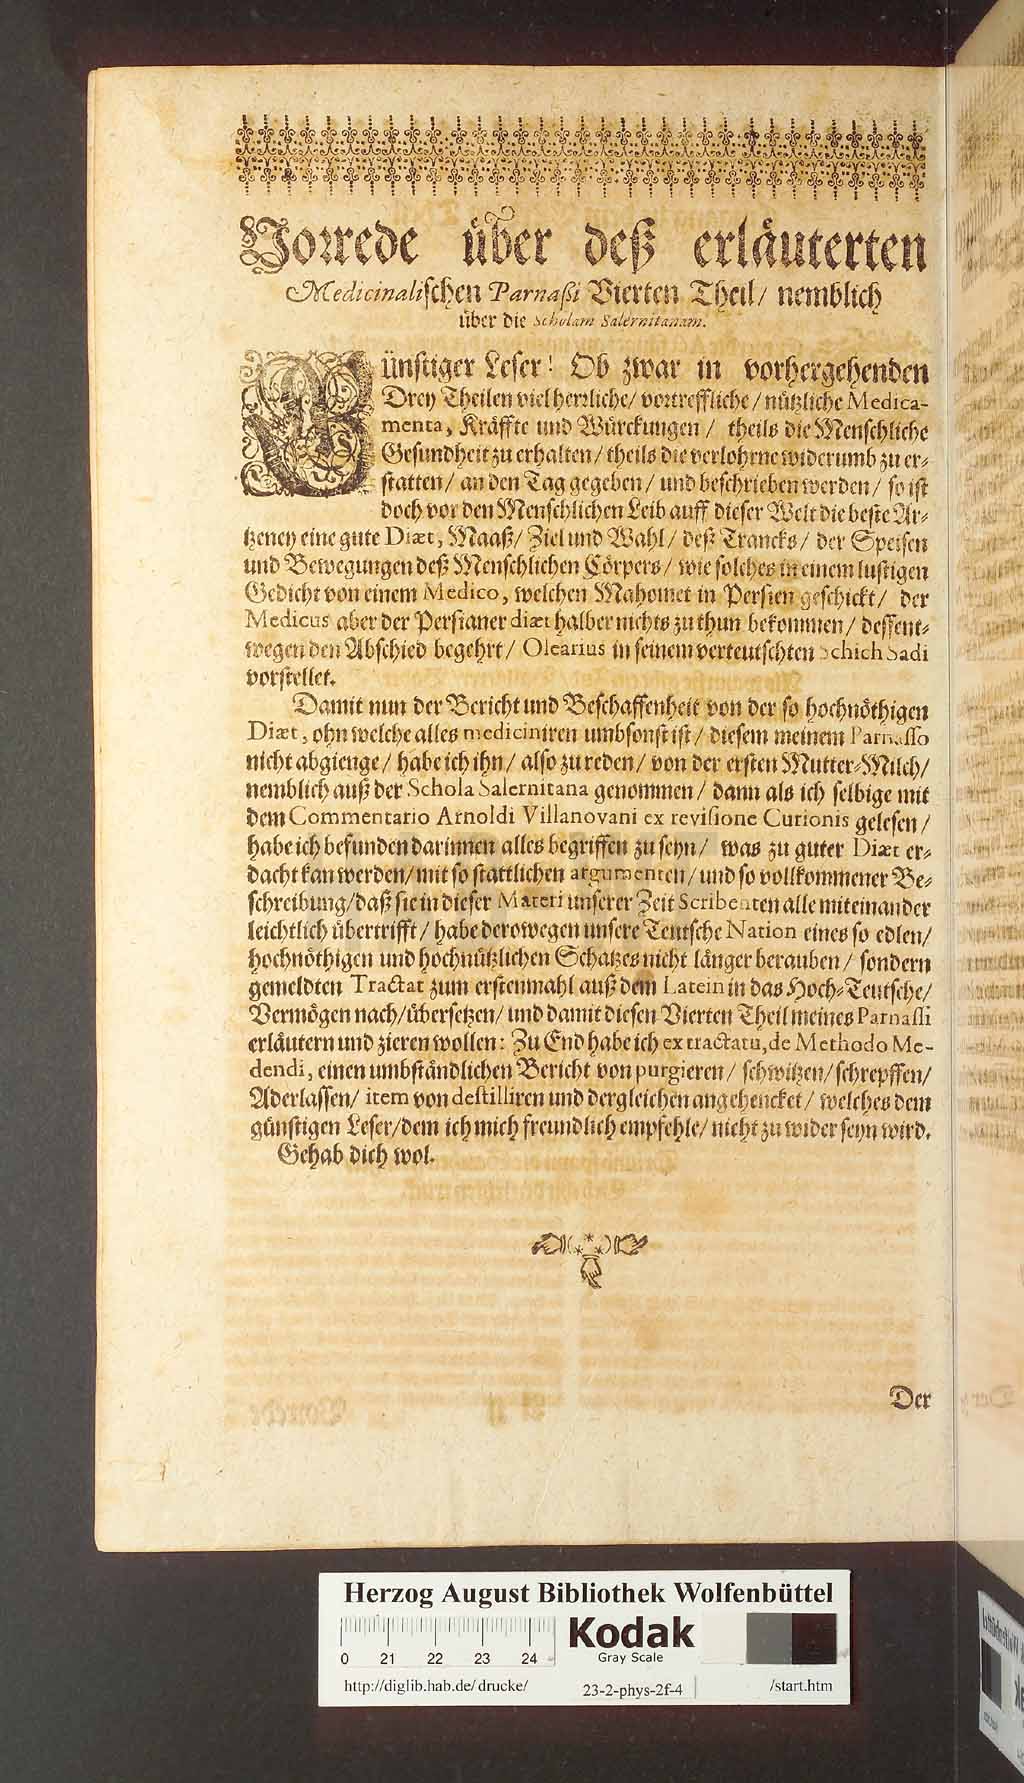 Vorrede über deß erläuterten
Medicinalischen Parnaßi Vierten Theil/ nemblich
über die Scholam Salernitanam.
Günstiger Leser! Ob zwar in vorhergehenden
Drey Theilen viel herrliche/ vortreffliche/ nützliche Medica-
menta, Kräffte und Würckungen/ theils die Menschliche
Gesundheit zu erhalten/ theils die verlohrne widerumb zu er-
statten/ an den Tag gegeben/ und beschrieben werden/ so ist
doch vor den Menschlichen Leib auff dieser Welt die beste Ar-
tzeney eine gute Diæt, Maaß/ Ziel und Wahl/ deß Trancks/ der Speisen
und Bewegungen deß Menschlichen Cörpers/ wie solches in einem lustigen
Gedicht von einem Medico, welchen Mahomet in Persien geschickt/ der
Medicus aber der Persianer diæt halber nichts zu thun bekommen/ dessent-
wegen den Abschied begehrt/ Olearius in seinem verteutschten Schich Sadi
vorstellet.
Damit nun der Bericht und Beschaffenheit von der so hochnöthigen
Diæt, ohn welche alles mediciniren umbsonst ist/ diesem meinem Parnasso
nicht abgienge/ habe ich ihn/ also zu reden/ von der ersten Mutter-Milch/
nemblich auß der Schola Salernitana genommen/ dann als ich selbige mit
dem Commentario Arnoldi Villanovani ex revisione Curionis gelesen/
habe ich befunden darinnen alles begriffen zu seyn/ was zu guter Diæt er-
dacht kan werden/ mit so stattlichen argumenten/ und so vollkommener Be-
schreibung/ daß sie in dieser Materi unserer Zeit Scribenten alle miteinander
leichtlich übertrifft/ habe derowegen unsere Teutsche Nation eines so edlen/
hochnöthigen und hochnützlichen Schatzes nicht länger berauben/ sondern
gemeldten Tractat zum erstenmahl auß dem Latein in das Hoch-Teutsche/
Vermögen nach/ übersetzen/ und damit diesen Vierten Theil meines Parnassi
erläutern und zieren wollen: Zu End habe ich ex tractatu, de Methodo Me-
dendi, einen umbständlichen Bericht von purgieren/ schwitzen/ schrepffen/
Aderlassen/ item von destilliren und dergleichen angehencket/ welches dem
günstigen Leser/ dem ich mich freundlich empfehle/ nicht zu wider seyn wird.
Gehab dich wol.
Der
Herzog August Bibliothek Wolfenbüttel
0 21 22 23 24
Kodak
Gray Scale
http://diglib.hab.de/drucke/ 23-2-phys-2f-4 /start.htm